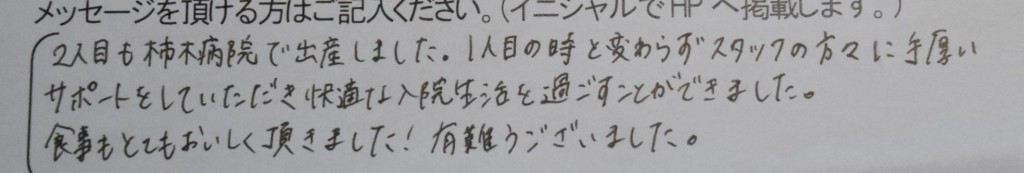 メッセージを頂ける方はご記入ください。(イニシャルでHPへ掲載します。)
2人目も柿木病院で出産しました。1人目の時と変わらずスタッフの方々に手厚い
サポートをしていただき快適な入院生活を過ごすことができました。
食事もとてもおいしく頂きました！有難うございました。